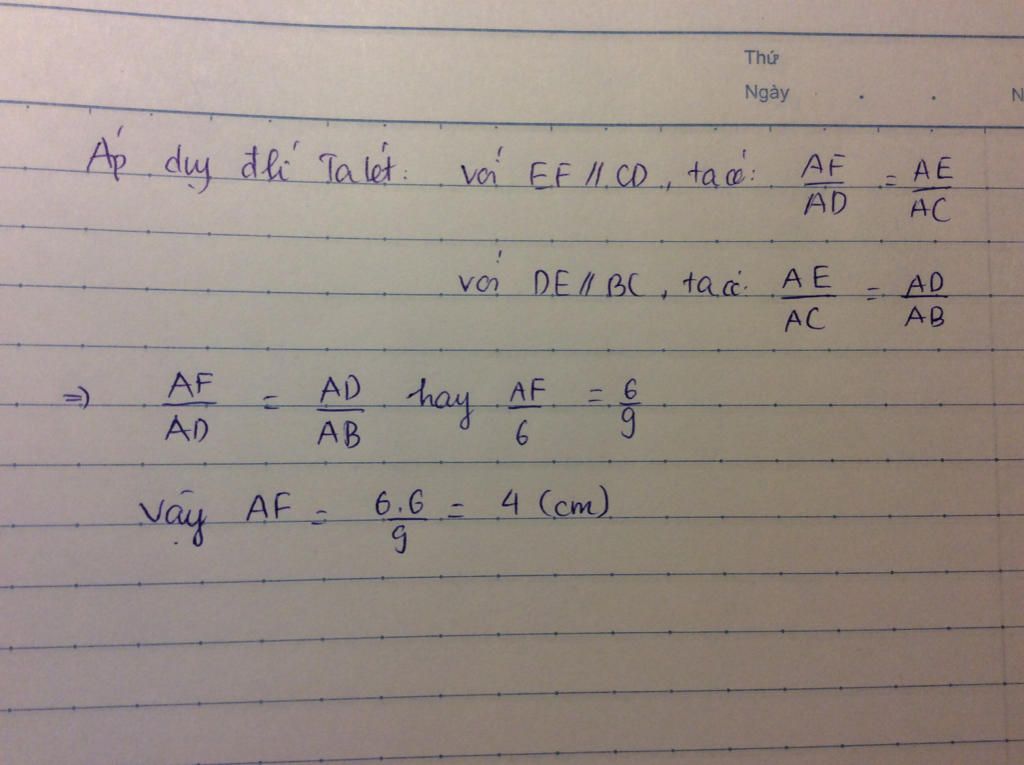 Thứ
Ngày . .
N
Áp dụg đlí Ta lét: với EF // CD, ta có: AF/AD = AE/AC
với DE // BC, ta có: AE/AC = AD/AB
=> AF/AD = AD/AB hay AF/6 = 6/9
Vậy AF = 6.6/9 = 4 (cm)